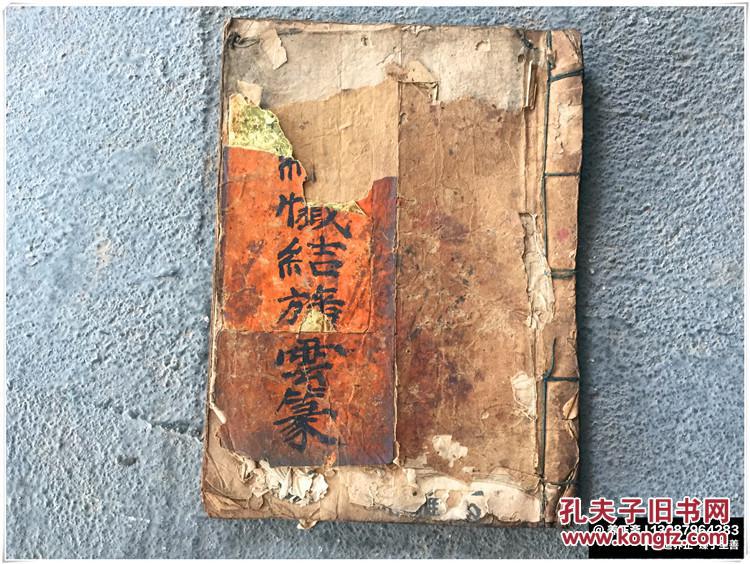 懺結旛雲篆
孔夫子旧书网
www.kongfz.com
13287964283